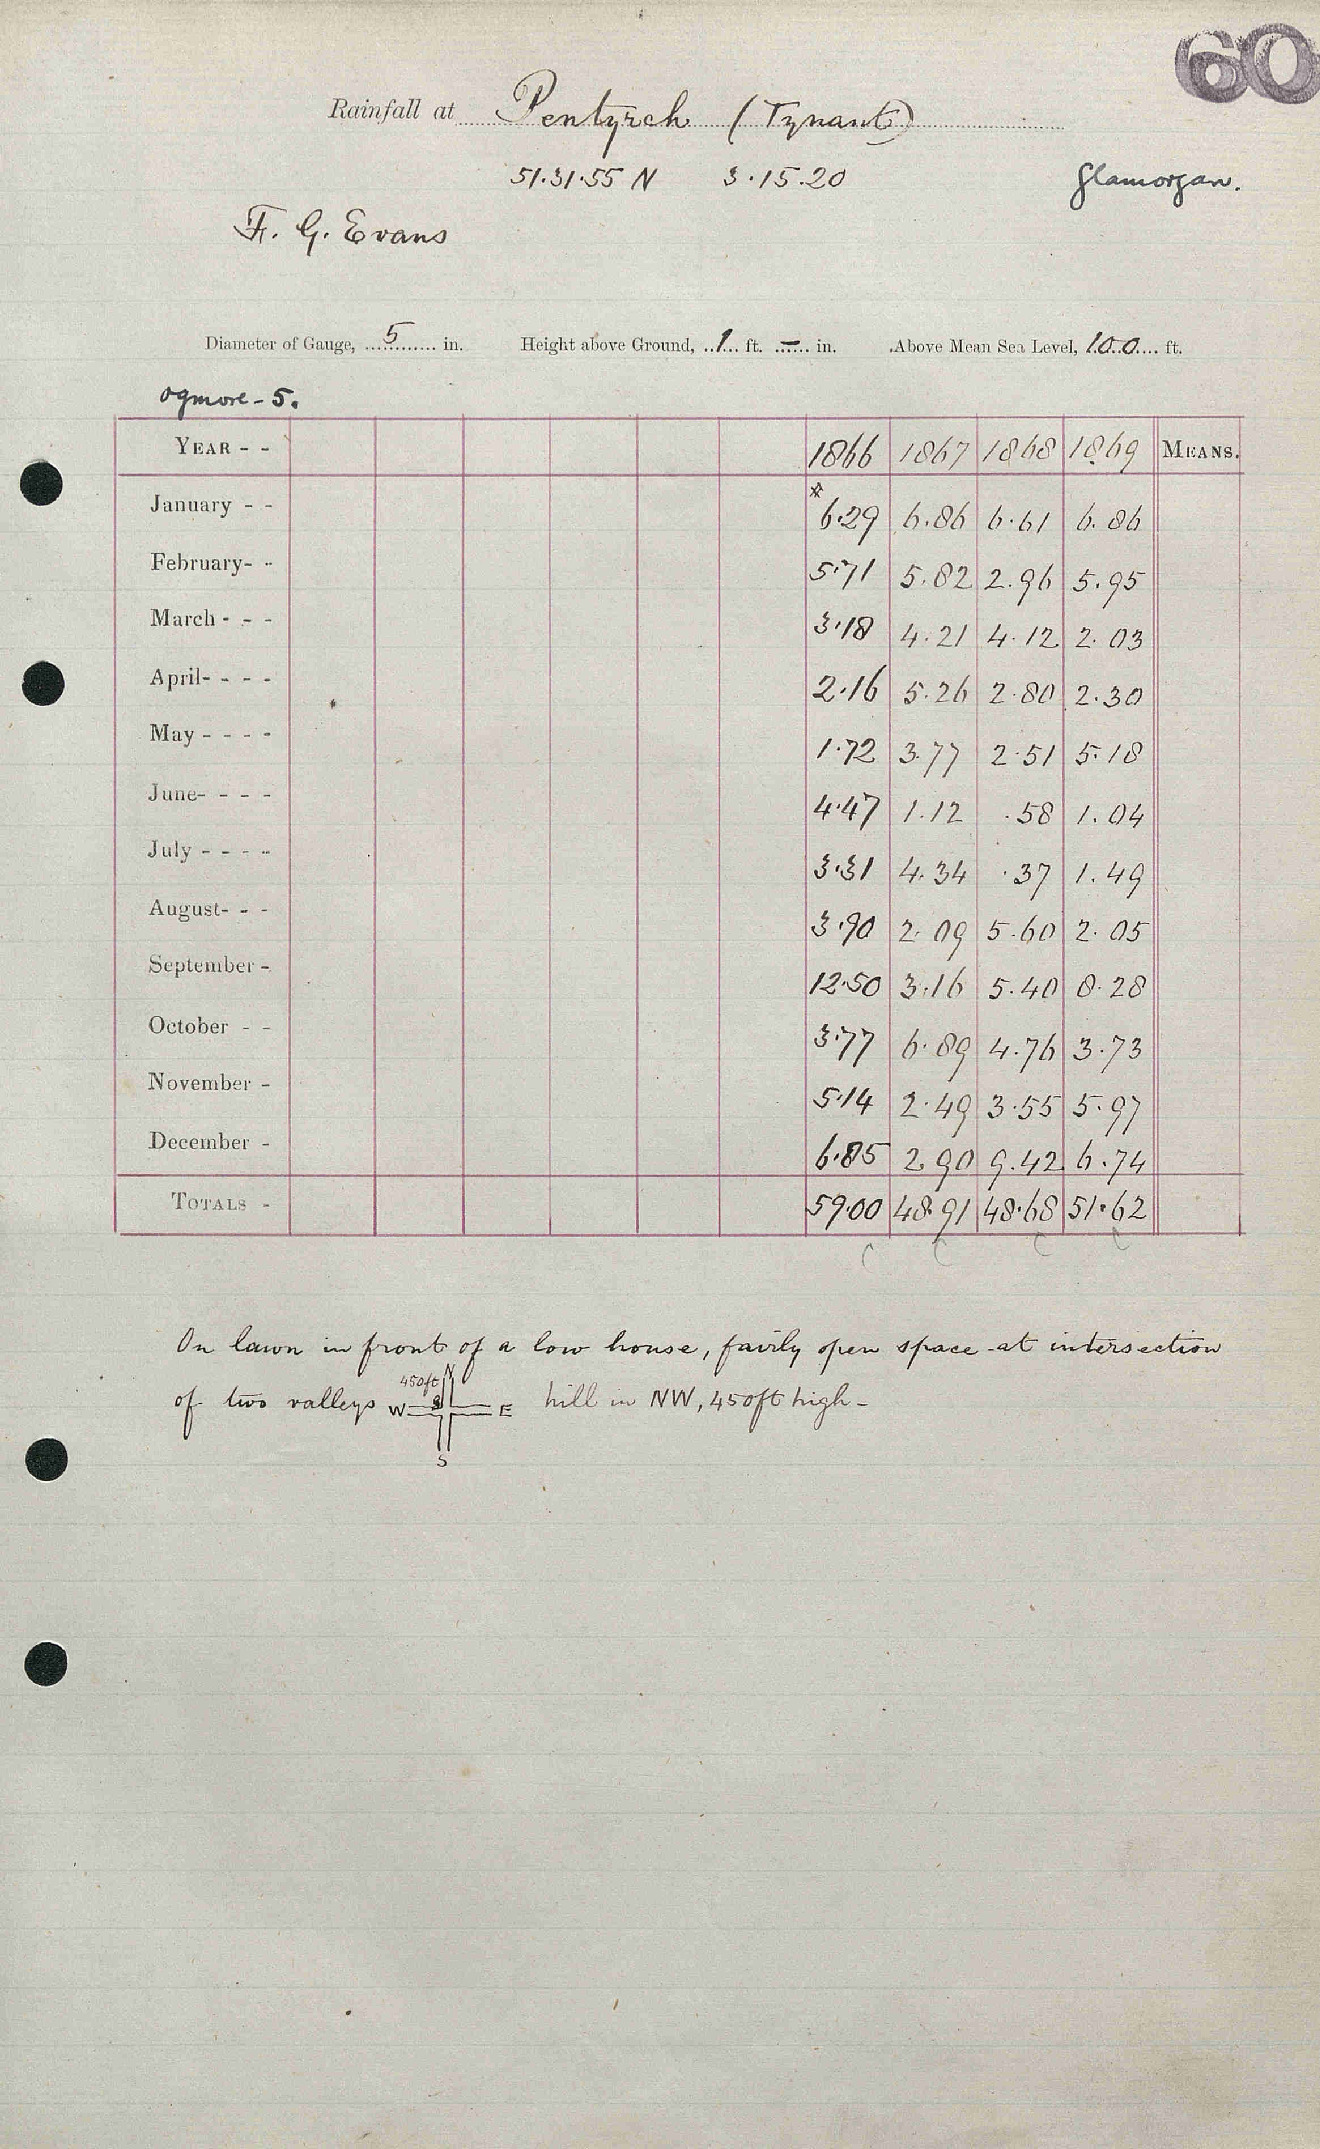 60
Rainfall at Pentyrch (Tynant)
51.31.55 N 3.15.20 Glamorgan.
F. G. Evans
Diameter of Gauge, 5 in. Height above Ground, 1 ft. – in. Above Mean Sea Level, 100 ft.
Ogmore - 5.
YEAR - - 1866 1867 1868 1869 MEANS.
January - - * 6.29 6.86 6.61 6.86
February- - 5.71 5.82 2.96 5.95
March - - - 3.18 4.21 4.12 2.03
April- - - - 2.16 5.26 2.80 2.30
May - - - - 1.72 3.77 2.51 5.18
June- - - - 4.47 1.12 .58 1.04
July - - - - 3.31 4.34 .37 1.49
August- - - 3.90 2.09 5.60 2.05
September - 12.50 3.16 5.40 8.28
October - - 3.77 6.89 4.76 3.73
November - 5.14 2.49 3.55 5.97
December - 6.85 2.90 9.42 6.74
TOTALS - 59.00 48.91 48.68 51.62
On lawn in front of a low house, fairly open space at intersection
450ft N
of two valleys W E hill in NW, 450ft high -
S